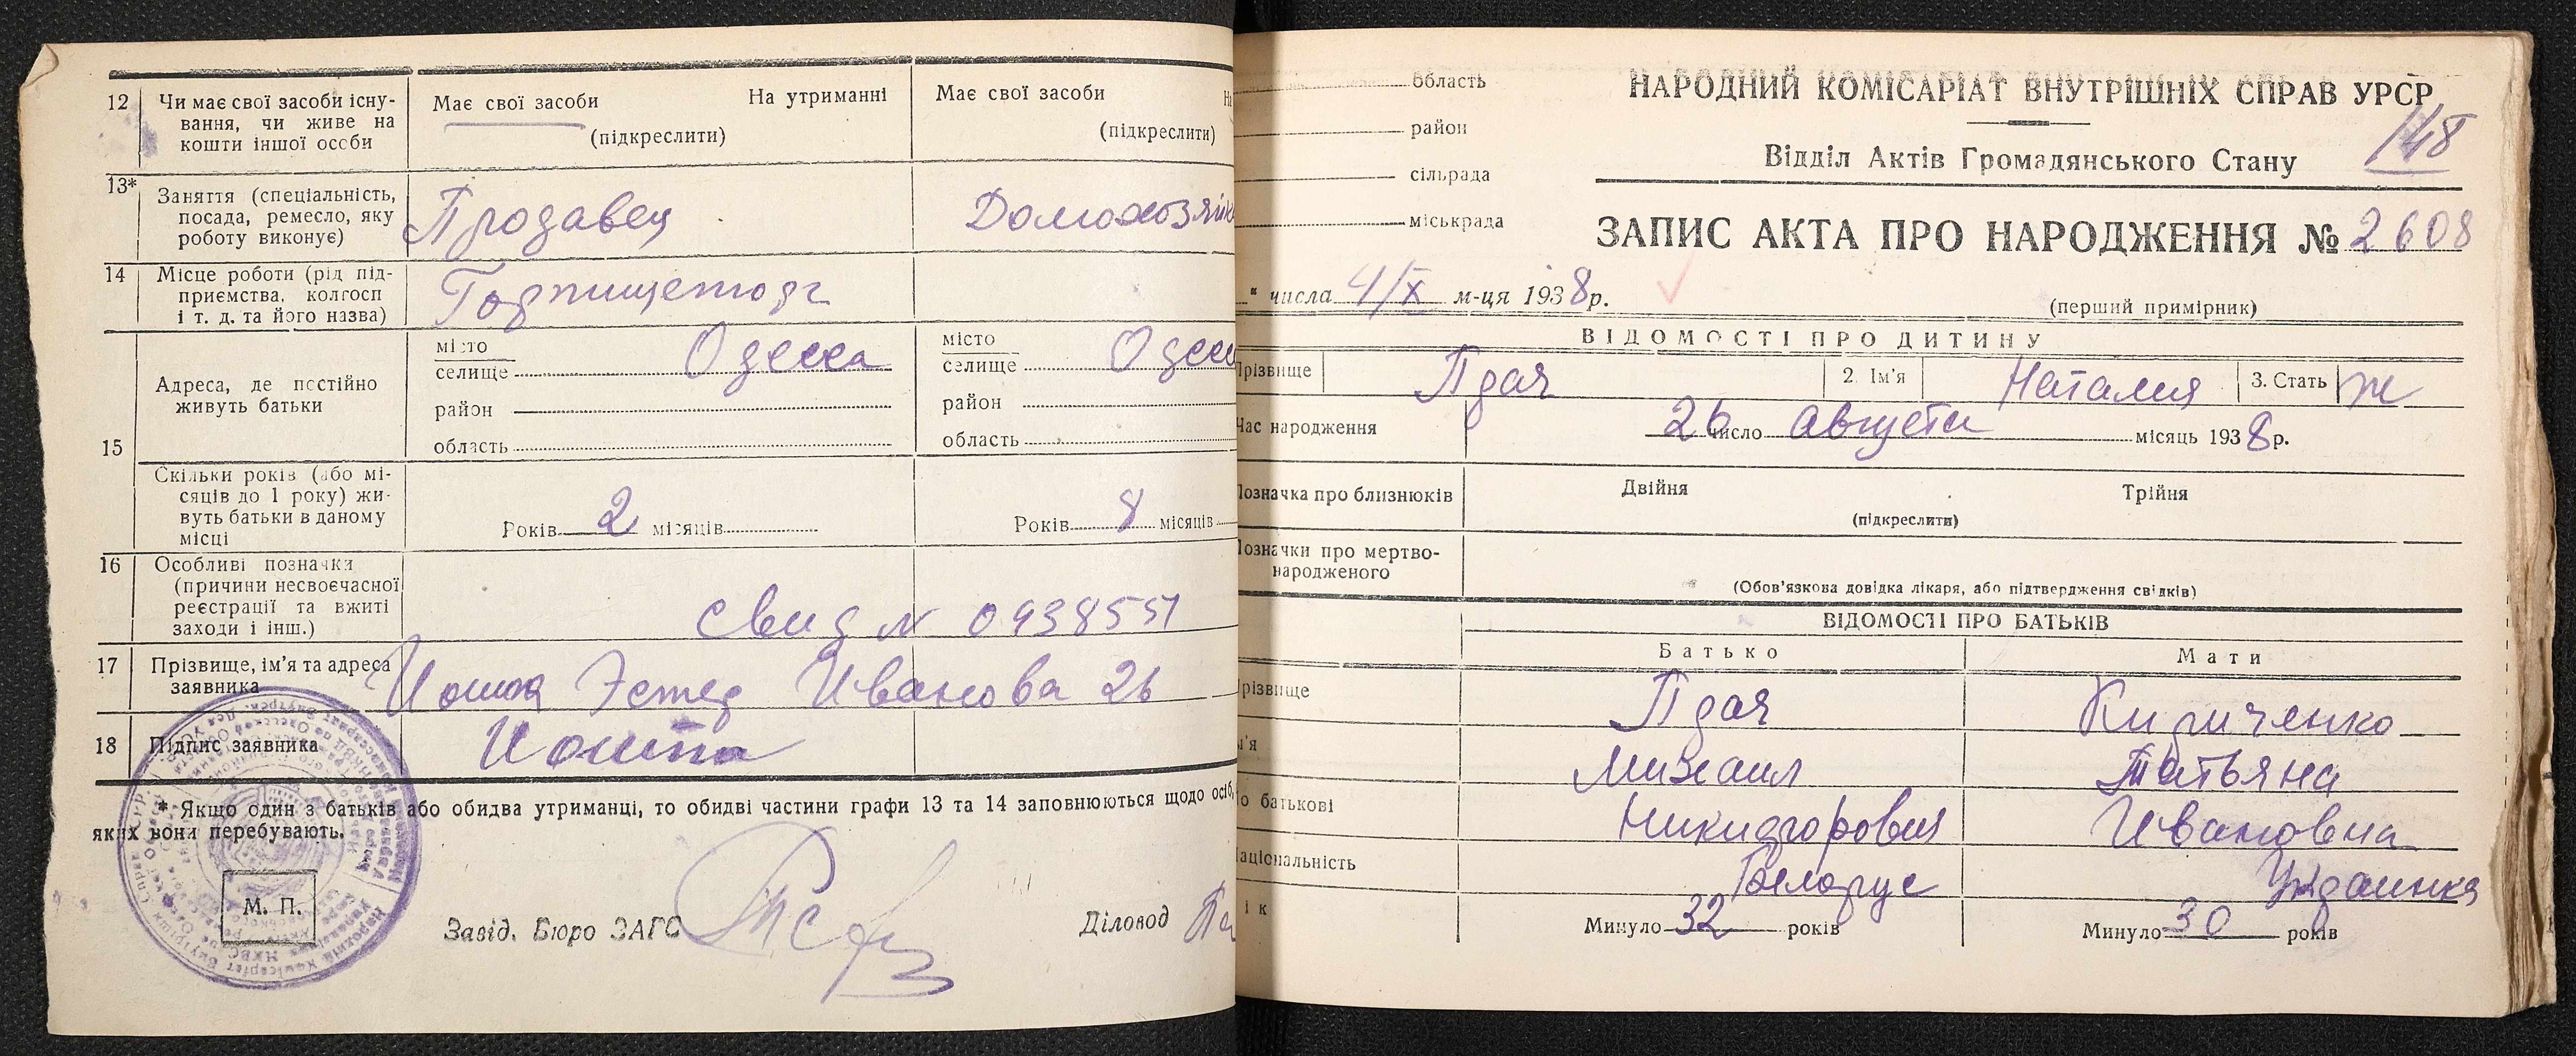 12
Чи має свої засоби існу-
вання, чи живе на
кошти іншої особи
Має свої засоби
На утриманні
(підкреслити)
Має свої засоби
(підкреслити)
13*
Заняття (спеціальність,
посада, ремесло, яку
роботу виконує)
Продавец
Домохозяйк
14
Місце роботи (рід під-
приємства, колгосп
і т. д. та його назва)
Горпищеторг
15
Адреса, де постійно
живуть батьки
місто
селище
Одесса
район
область
місто
селище
Одесс
район
область
Скільки років (або мі-
сяців до 1 року) жи-
вуть батьки в даному
місці
Років 2 місяців
Років 8 місяців
16
Особливі позначки
(причини несвоєчасної
реєстрації та вжиті
заходи і інш.)
Свид N
17
Прізвище, ім'я та адреса
заявника
Эстер Иванова 26
18
Підпис заявника
* Якщо один з батьків або обидва утриманці, то обидві частини графи 13 та 14 заповнюються щодо осіб,
яких вони перебувають.
М. П.
Завід. Бюро ЗАГС
Діловод
область
район
сільрада
міськрада
НАРОДНИЙ КОМІСАРІАТ ВНУТРІШНІХ СПРАВ УРСР
148
Відділ Актів Громадянського Стану
ЗАПИС АКТА ПРО НАРОДЖЕННЯ № 2608
" числа 4/X м-ця 1938р.
(перший примірник)
ВІДОМОСТІ ПРО ДИТИНУ
Прізвище
Прач
2. Ім'я
Наталия
3. Стать
ж
Час народження
26 число августа місяць 1938р.
Позначка про близнюків
Двійня
Трійня
(підкреслити)
Позначки про мертво-
народженого
(Обов'язкова довідка лікаря, або підтвердження свідків)
ВІДОМОСТІ ПРО БАТЬКІВ
Батько
Мати
різвище
Прач
Кириченко
м'я
Михаил
Татьяна
о батькові
Никифорович
Ивановна
аціональність
Белорус
Украинка
ік
Минуло 32 років
Минуло 30 років